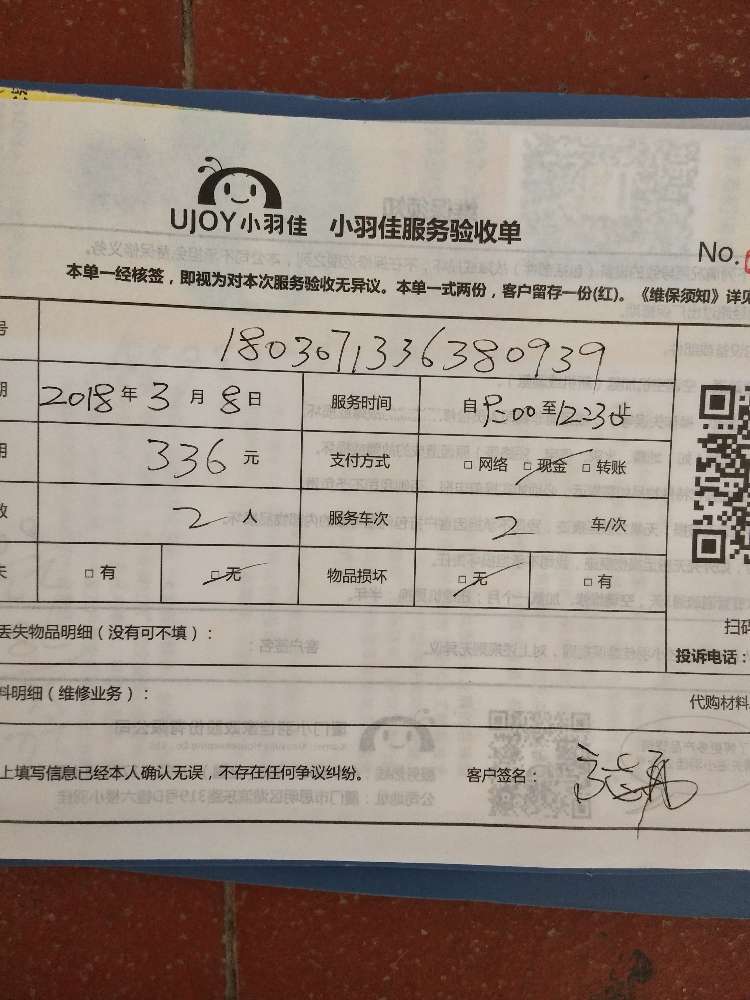 UJOY小羽佳 小羽佳服务验收单
No.
本单一经核签，即视为对本次服务验收无异议。本单一式两份，客户留存一份(红)。《维保须知》详见
号 180307133638​0939
期 2018年3月8日 服务时间 自9:00至12:30止
用 336元 支付方式 □网络 □现金 □转账
数 2人 服务车次 2车/次
失 □有 □无 物品损坏 □无 □有
扫码
丢失物品明细（没有可不填）：
投诉电话：
料明细（维修业务）：
代购材料
上填写信息已经本人确认无误，不存在任何争议纠纷。 客户签名：